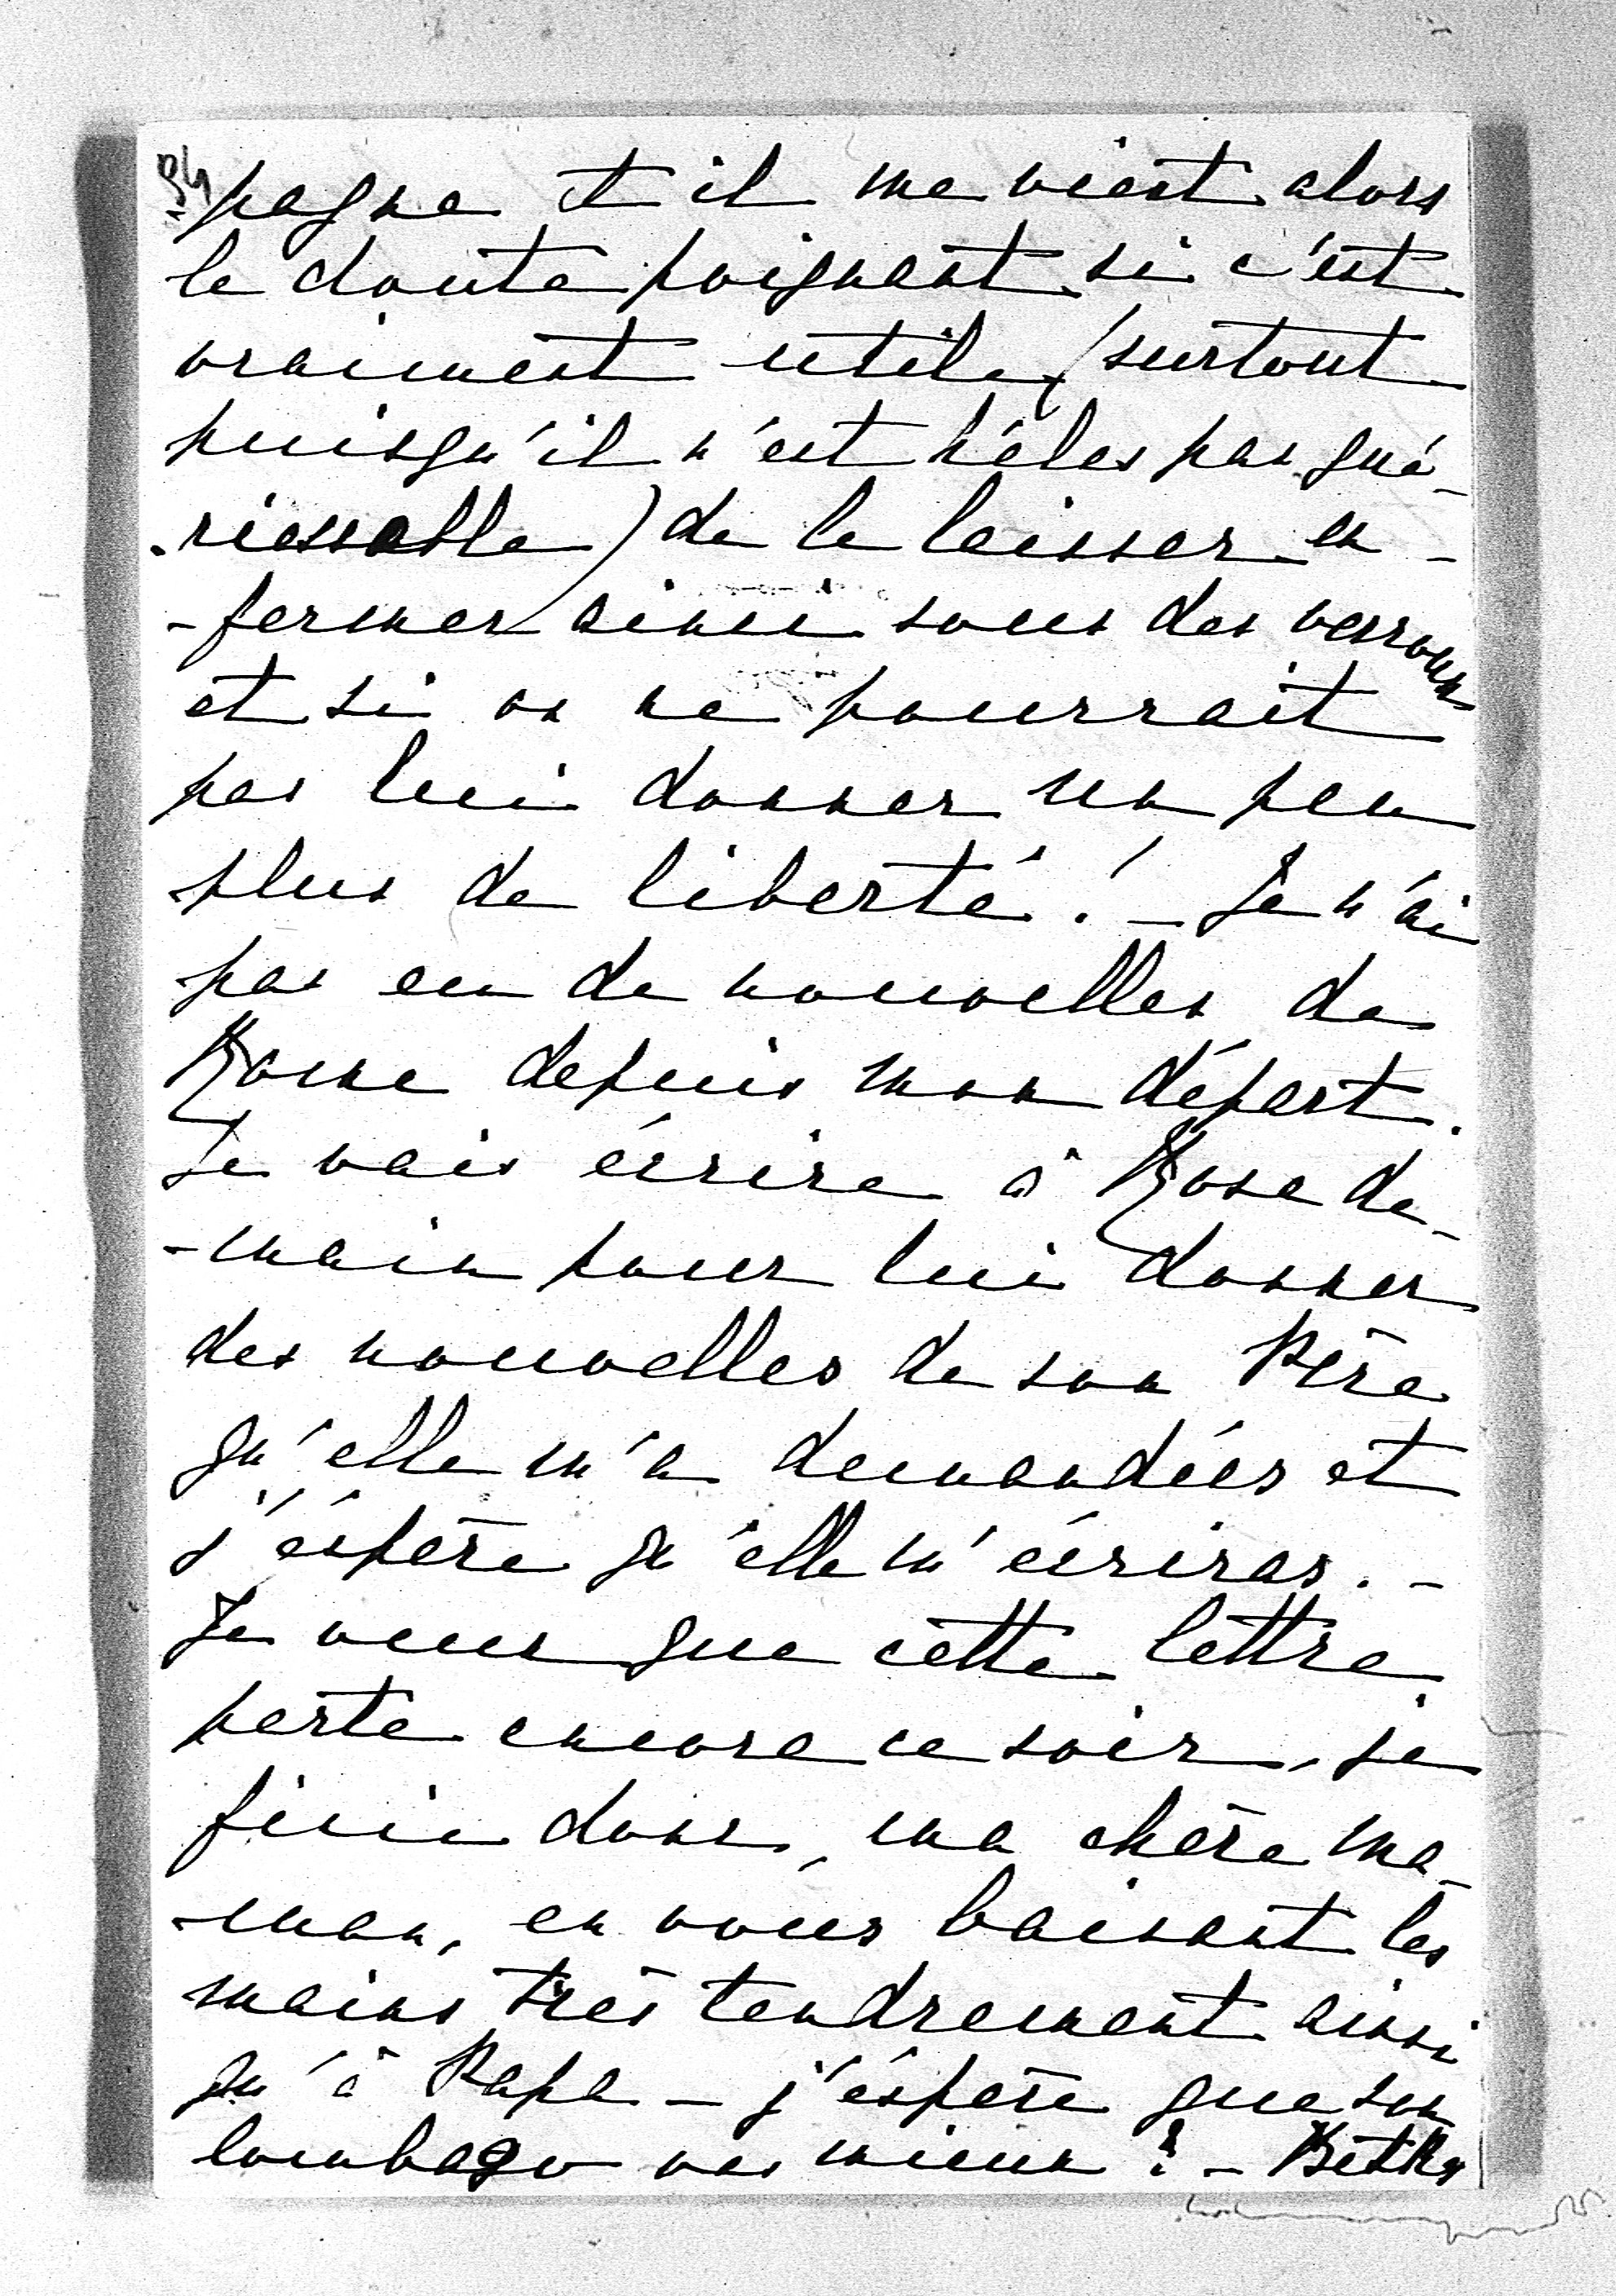 194
pagne et il me vient alors
le doute poignant si c'est
vraiment utile, (surtout
puisqu'il n'est hélas pas gué-
-rissable) de le laisser en-
-fermer ainsi sous des verroux
et si on ne pourrait
pas lui donner un peu
plus de liberté! - Je n'ai
pas eu de nouvelles de
Rome depuis mon départ.
Je vais écrire à Rose de-
-main pour lui donner
des nouvelles de son Père
qu'elle m'a demandées et
j'éspère qu'elle m'écriras. -
Je veux que cette lettre
parte encore ce soir, je
finis donc, ma chère ma-
-man, en vous baisant les
mains très tendrement ainsi
qu'à Papa - j'éspère que son
lombago vas mieux? -